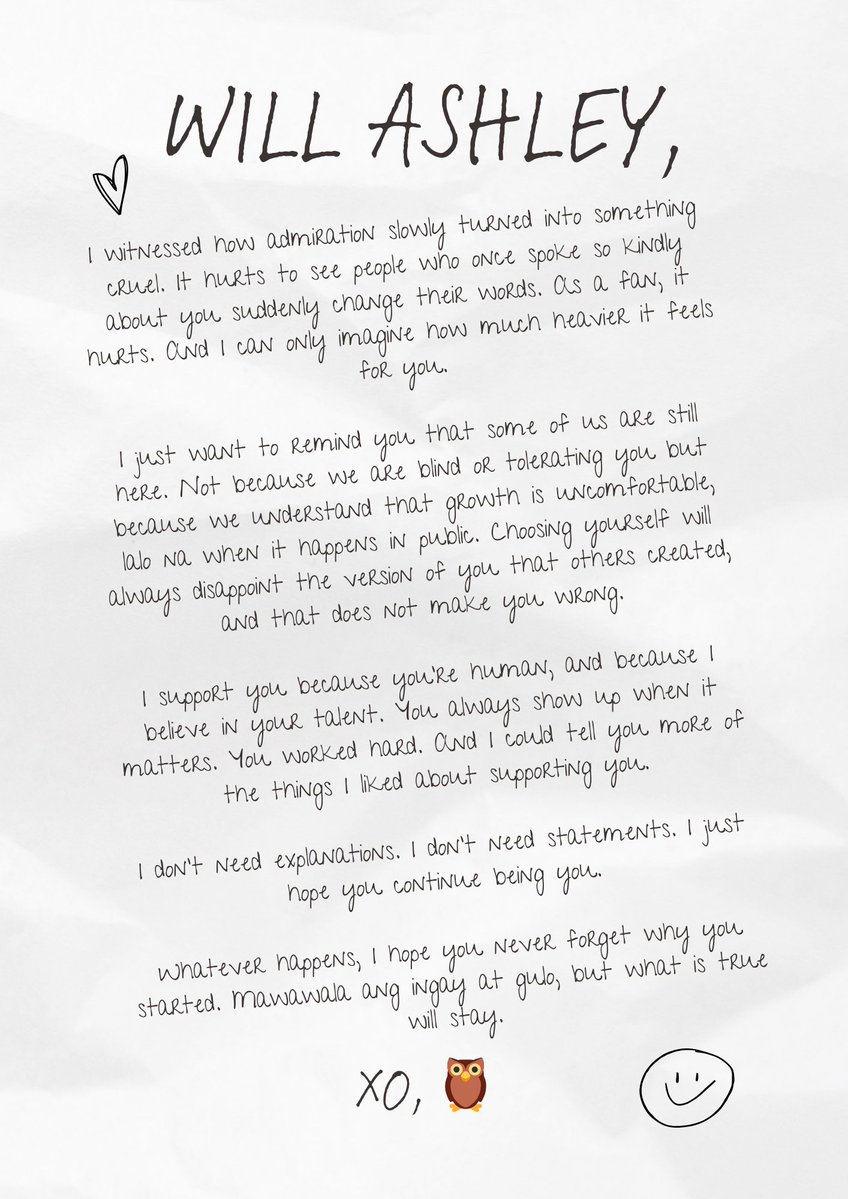 WILL ASHLEY,
I witnessed how admiration slowly turned into something
cruel. It hurts to see people who once spoke so kindly
about you suddenly change their words. As a fan, it
hurts. And I can only imagine how much heavier it feels
for you.
I just want to remind you that some of us are still
here. Not because we are blind or tolerating you but
because we understand that growth is uncomfortable,
lalo na when it happens in public. Choosing yourself will
always disappoint the version of you that others created,
and that does not make you wrong.
I support you because you're human, and because I
believe in your talent. You always show up when it
matters. You worked hard. And I could tell you more of
the things I liked about supporting you.
I don't need explanations. I don't need statements. I just
hope you continue being you.
Whatever happens, I hope you never forget why you
started. Mawawala ang ingay at gulo, but what is true
will stay.
XO,